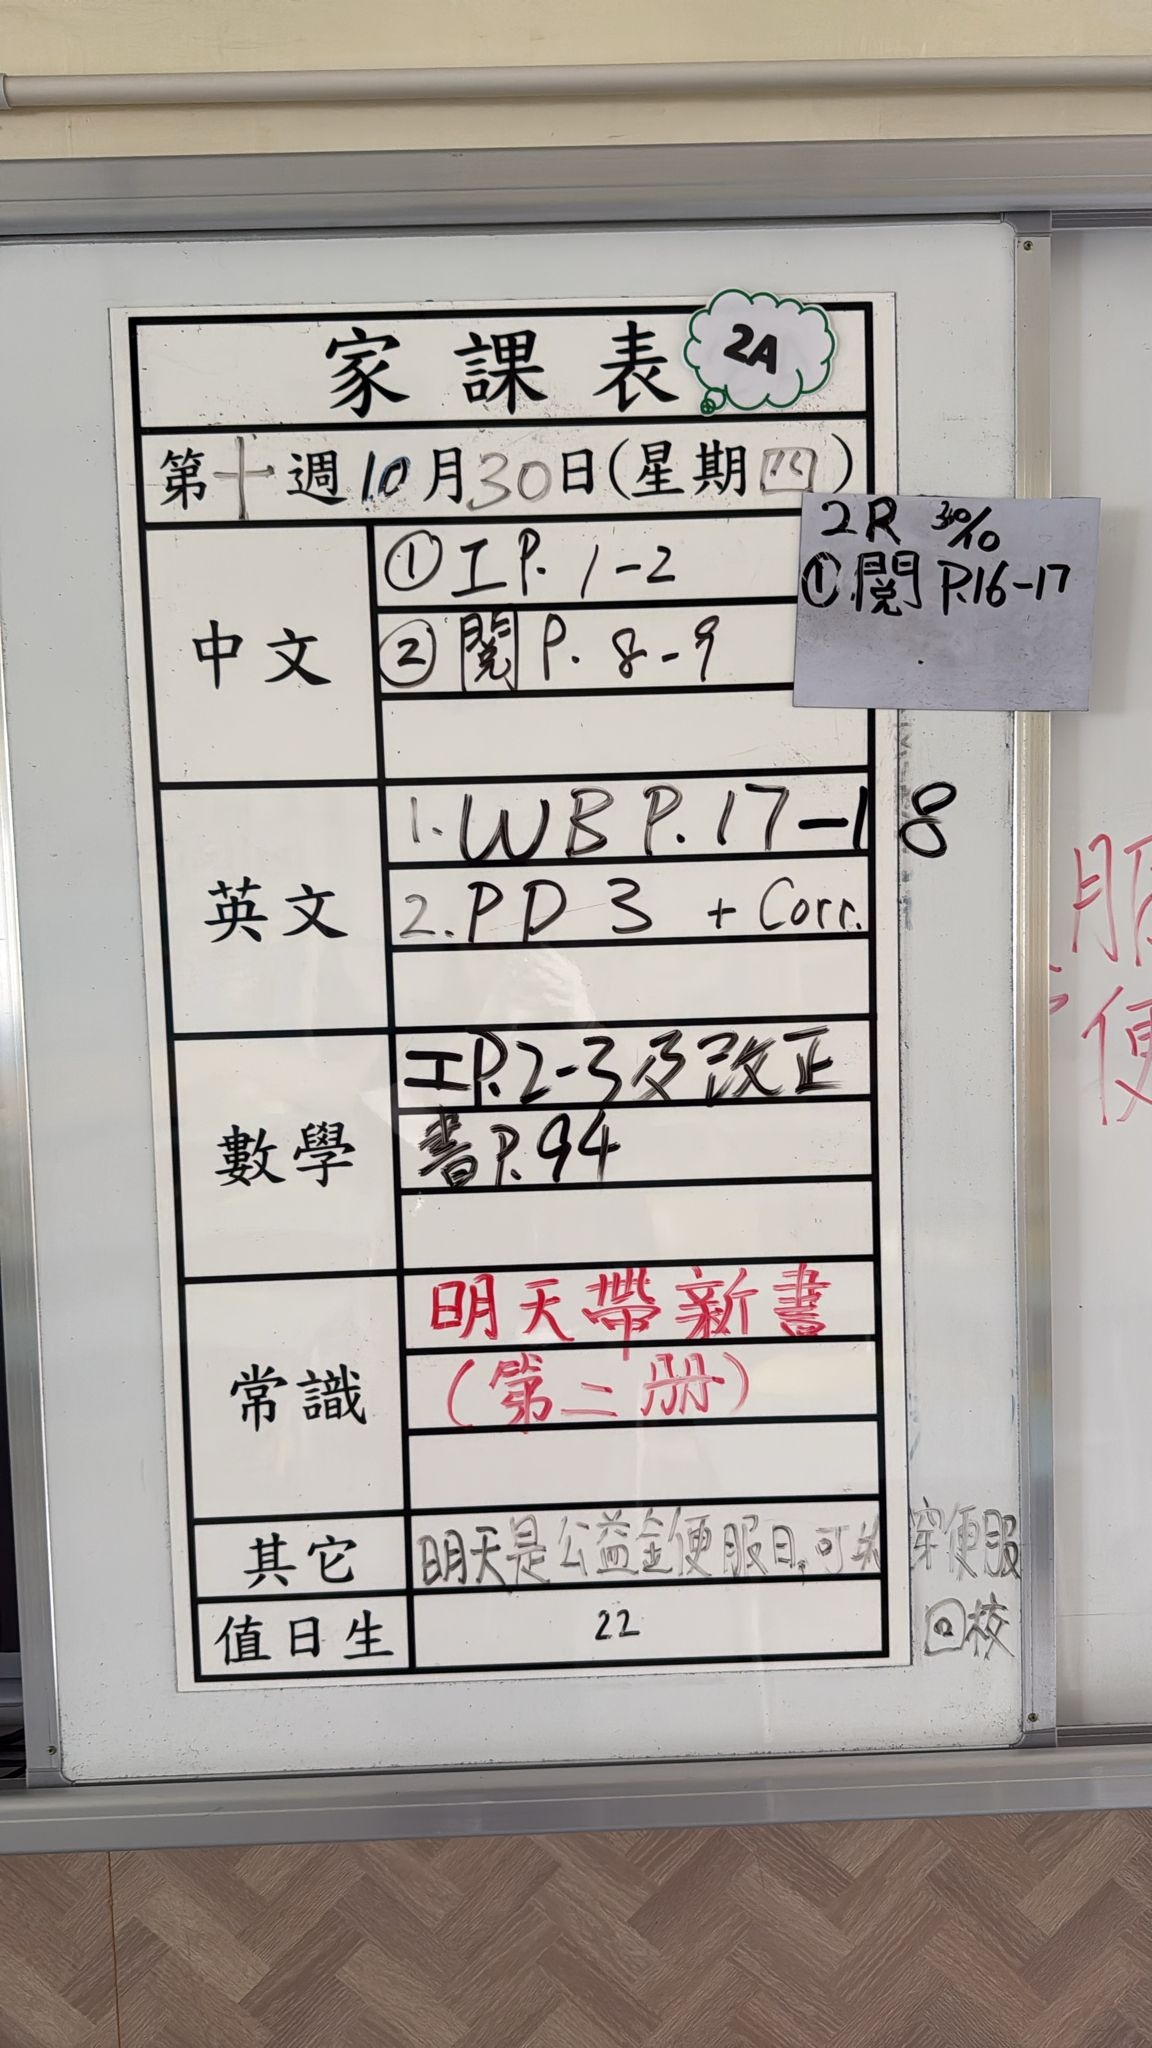 家課表 2A
第十週10月30日(星期四)
中文
①工P. 1-2
②閱 P. 8-9
2R 30/10
①閱 P.16-17
英文
1. WB P.17-18
2. PD 3 + Corr.
數學
工P.2-3及改正
書P.94
常識
明天帶新書
(第二册)
其它
明天是公益金便服日,可
穿便服
回校
值日生
22
服
便